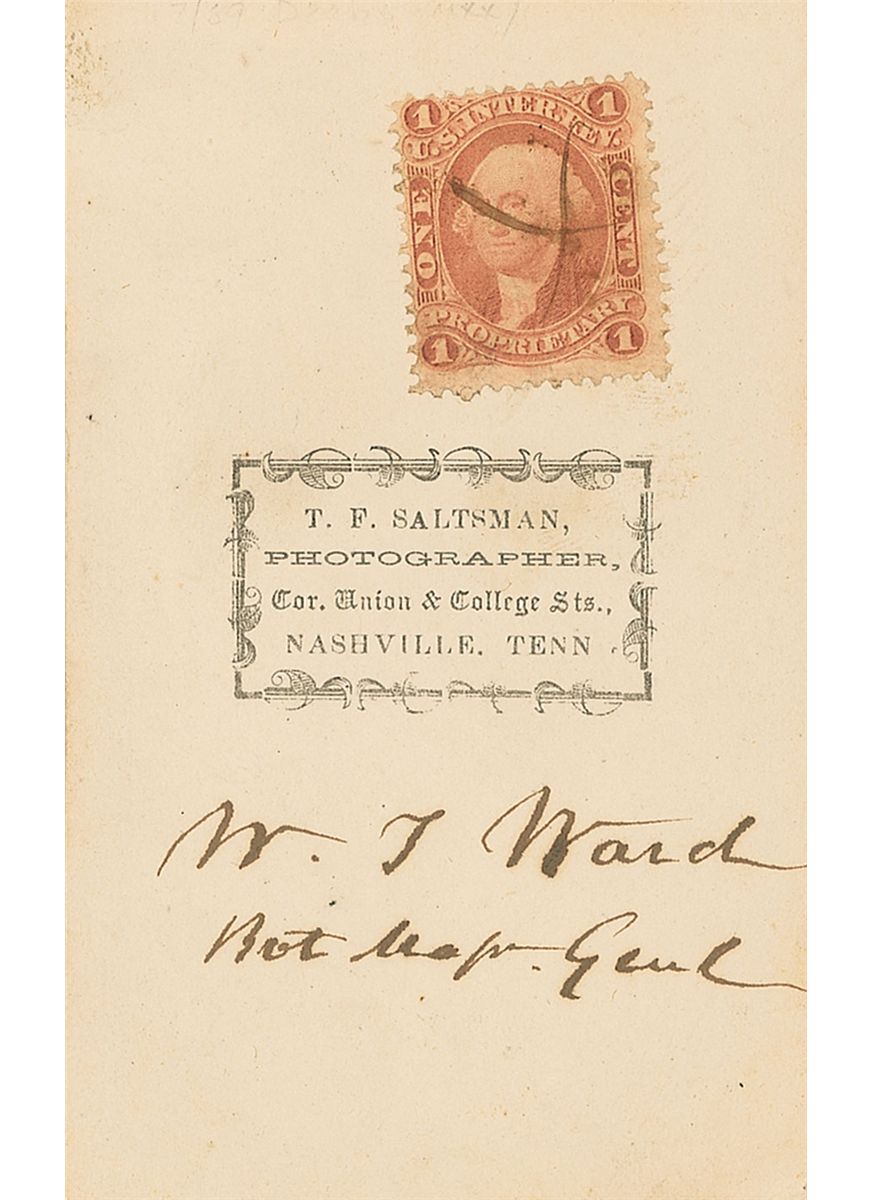 1 U.S. INTER. REV. 1
ONE
CENT
1 PROPRIETARY 1
T. F. SALTSMAN,
PHOTOGRAPHER,
Cor. Union & College Sts.,
NASHVILLE. TENN.
W. T Ward
Bvt Majr. Genl